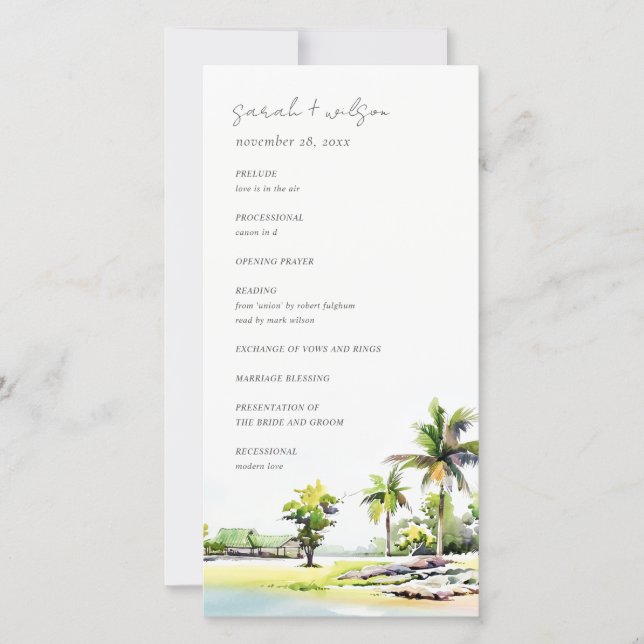 sarah + wilson
november 28, 20xx
PRELUDE
love is in the air
PROCESSIONAL
canon in d
OPENING PRAYER
READING
from 'union' by robert fulghum
read by mark wilson
EXCHANGE OF VOWS AND RINGS
MARRIAGE BLESSING
PRESENTATION OF
THE BRIDE AND GROOM
RECESSIONAL
modern love